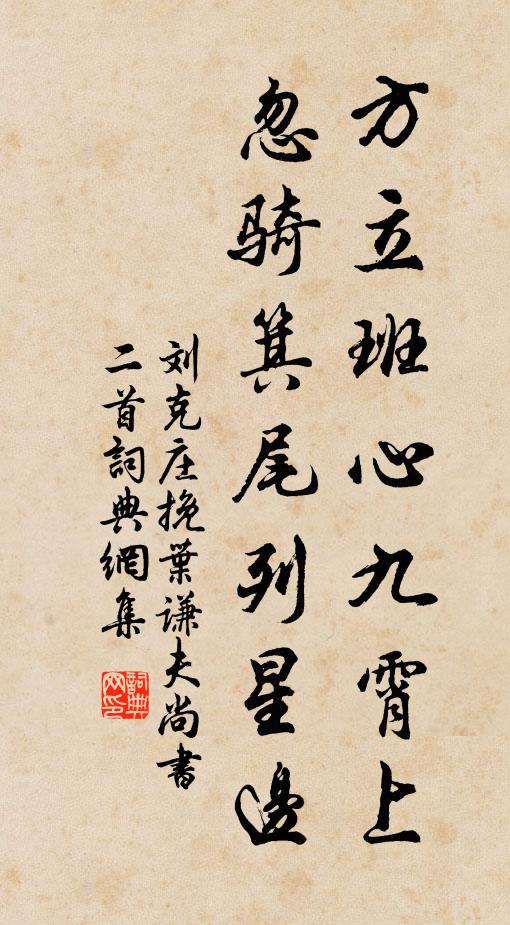 方立班心九霄上
忽骑箕尾列星邊
刘克庄挽葉谦夫尚書
二首詞典網集
詞典
网印